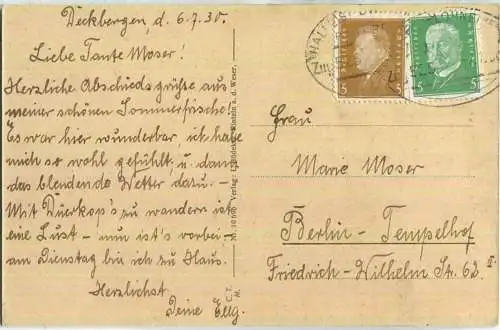 Deckbergen, d. 6.7.30.
Liebe Tante Moser!
Herzliche Abschiedsgrüsse aus
meiner schönen Sommerfrische!
Es war hier wunderbar, ich habe
mich so wohl gefühlt, u. dann
das blendende Wetter dazu. –
Mit Dürkop's zu wandern ist
eine Lust – nun ist's vorbei –
am Dienstag bin ich zu Haus.
Herzlichst
Deine Elly.
Rinteln a. d. Weser.
Verlag:
C. T.
M.
5 5
5 5
Frau
Marie Moser
Berlin-Tempelhof
Friedrich-Wilhelm Str. 62 II.